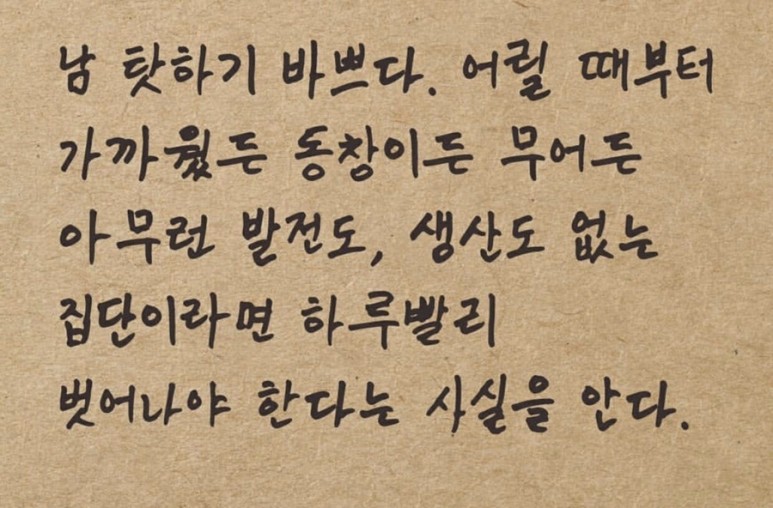 남 탓하기 바쁘다. 어릴 때부터
가까웠든 동창이든 무어든
아무런 발전도, 생산도 없는
집단이라면 하루빨리
벗어나야 한다는 사실을 안다.